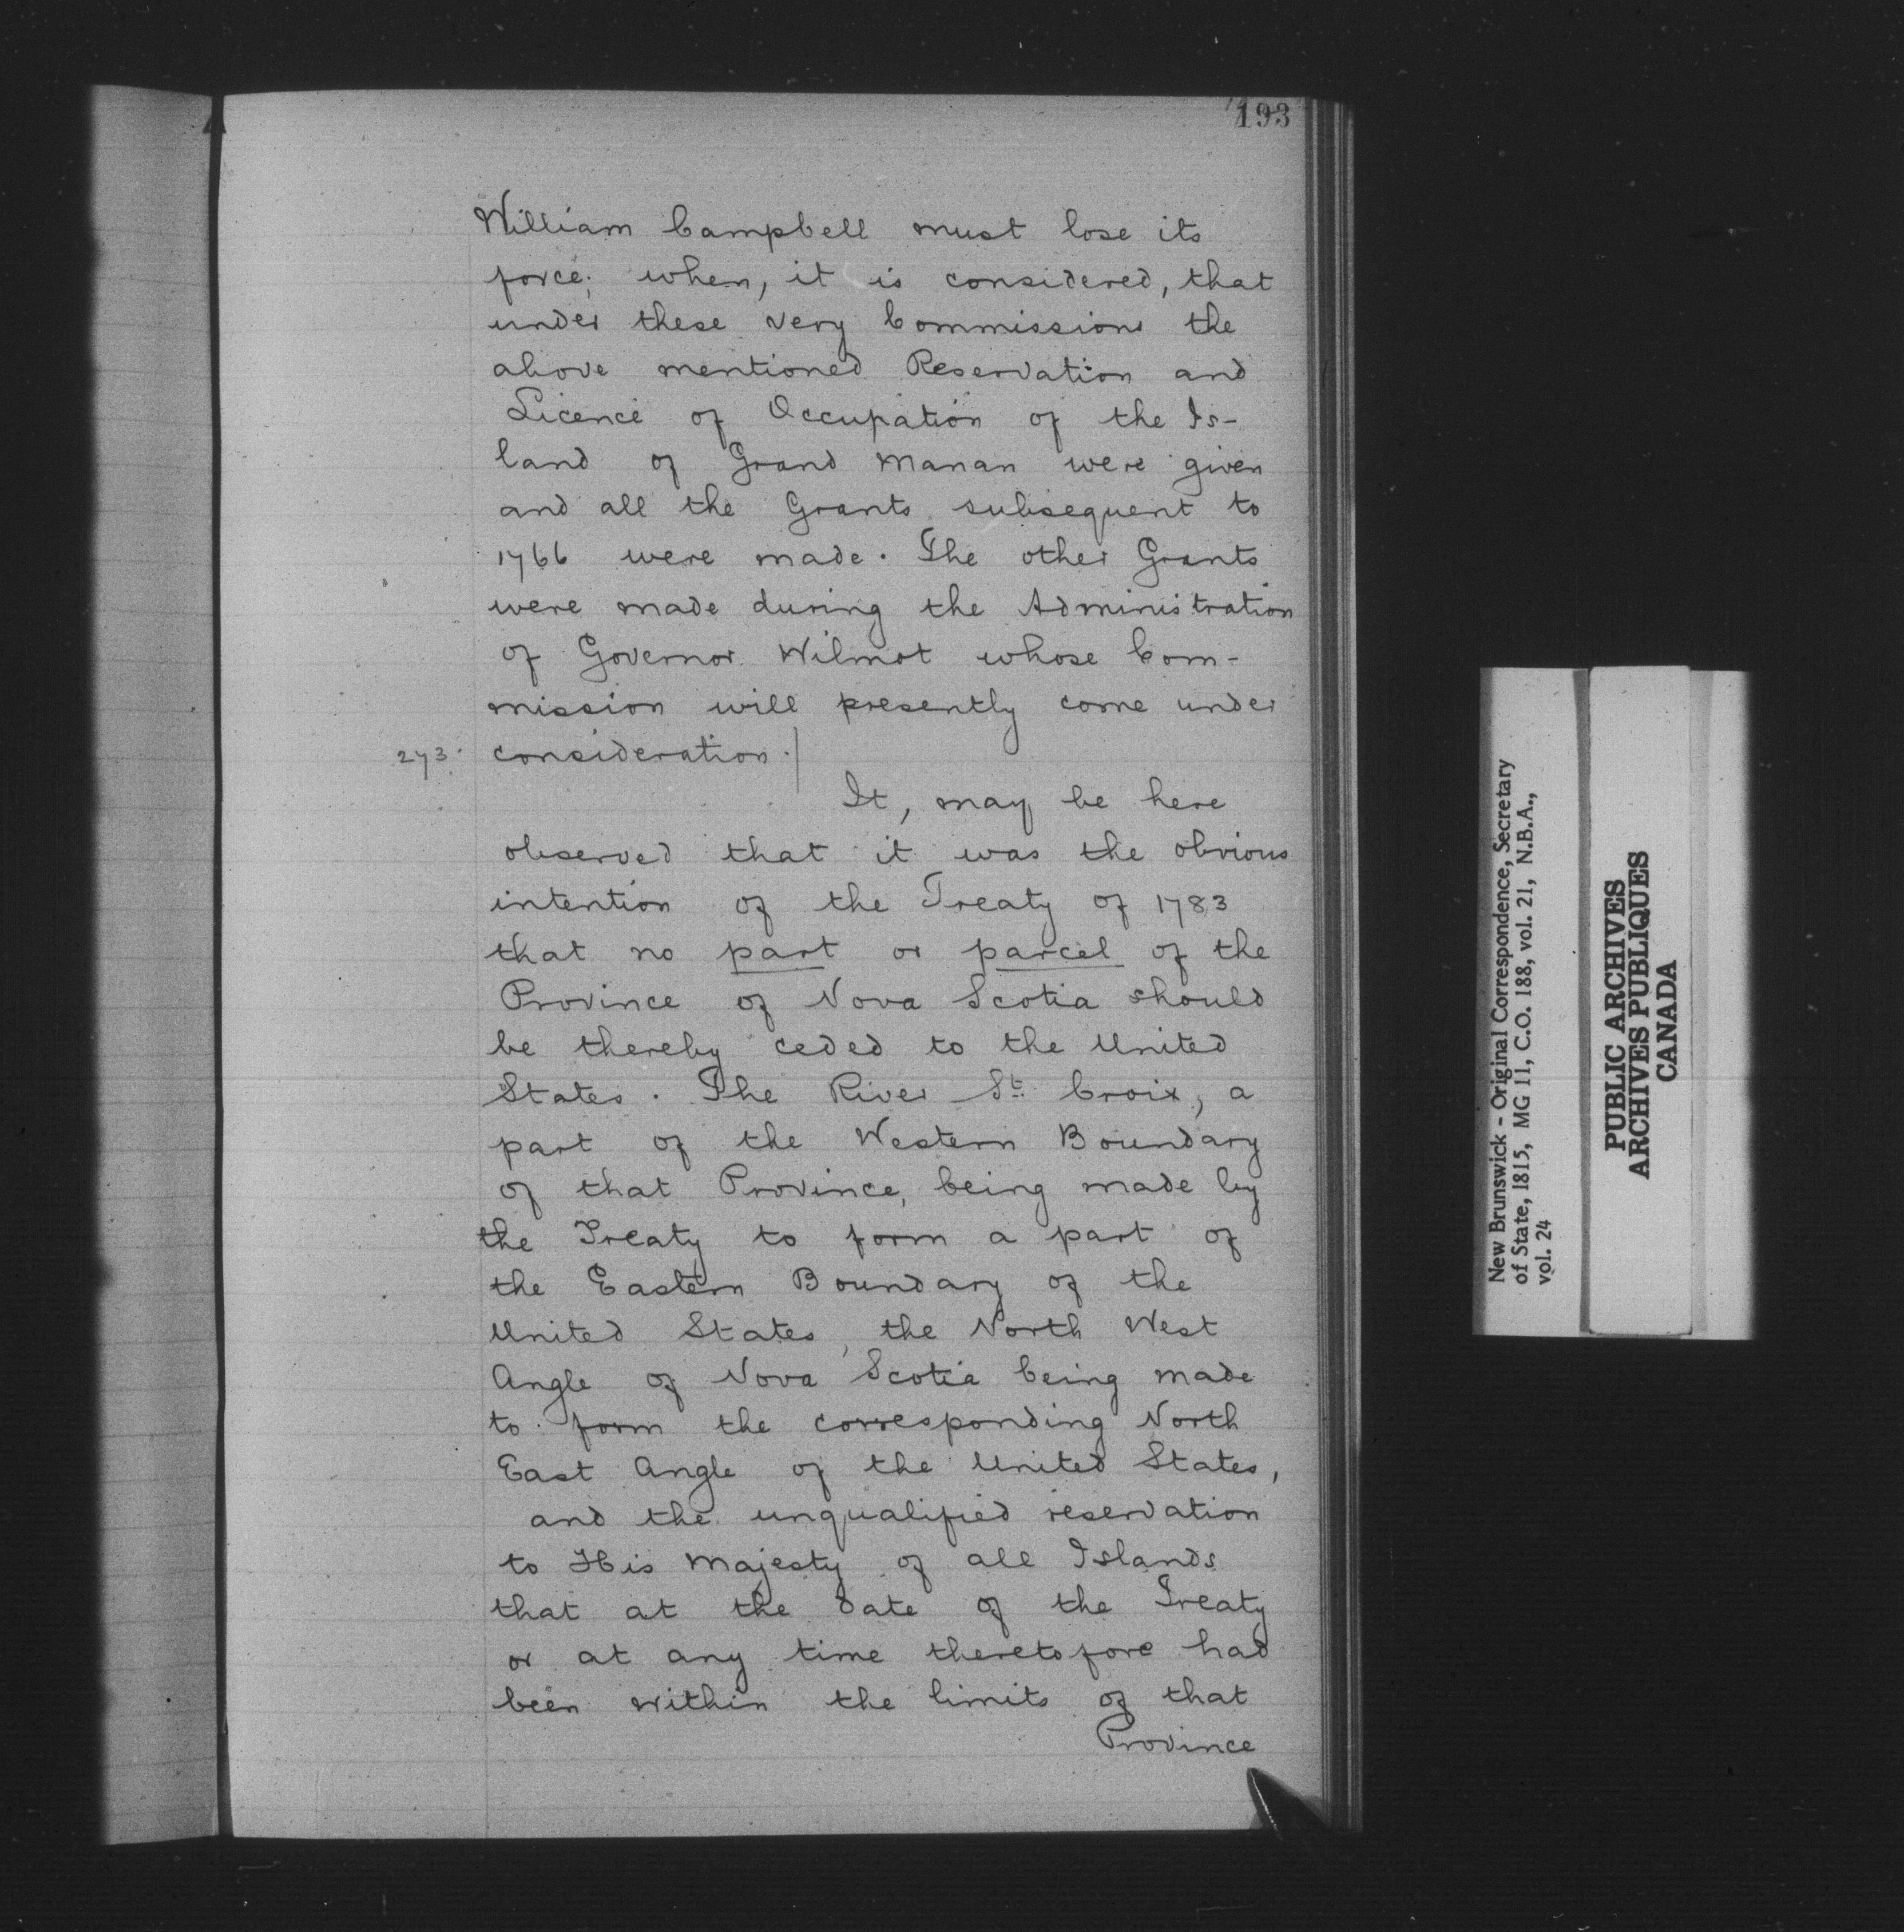 193
William Campbell must lose its
force; when, it is considered, that
under these very Commissions the
above mentioned Reservation and
Licence of Occupation of the Is-
land of Grand Manan were given
and all the Grants subsequent to
1766 were made. The other Grants
were made during the Administration
of Governor Wilmot whose Com-
mission will presently come under
273. consideration.|
It, may be here
observed that it was the obvious
intention of the Treaty of 1783
that no part or parcel of the
Province of Nova Scotia should
be thereby ceded to the United
States. The River St. Croix, a
part of the Western Boundary
of that Province, being made by
the Treaty to form a part of
the Eastern Boundary of the
United States, the North West
Angle of Nova Scotia being made
to form the corresponding North
East Angle of the United States,
and the unqualified reservation
to His Majesty of all Islands
that at the date of the Treaty
or at any time theretofore had
been within the limits of that
Province
New Brunswick - Original Correspondence, Secretary
of State, 1815, MG 11, C.O. 188, vol. 21, N.B.A.,
vol. 24
PUBLIC ARCHIVES
ARCHIVES PUBLIQUES
CANADA